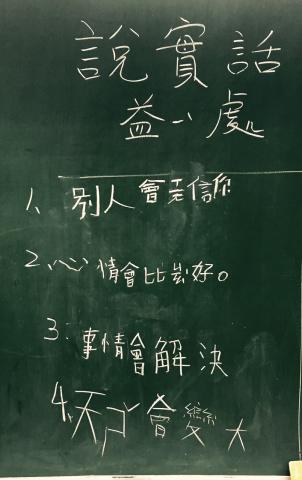 說實話
益處
1、別人會相信你
2、心情會比較好。
3.事情會解決
4、天才會變大